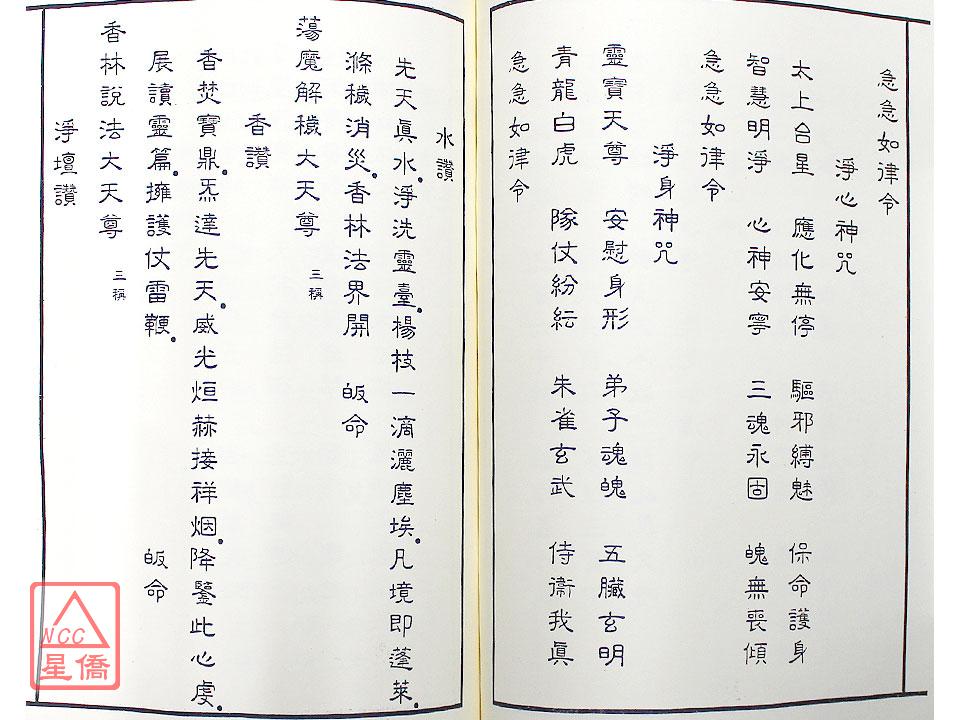 急急如律令
淨心神咒
太上台星 應化無停 驅邪縛魅 保命護身
智慧明淨 心神安寧 三魂永固 魄無喪傾
急急如律令
淨身神咒
靈寶天尊 安慰身形 弟子魂魄 五臟玄明
青龍白虎 隊仗紛紜 朱雀玄武 侍衞我眞
急急如律令
水讚
先天眞水.淨洗靈臺.楊枝一滴灑塵埃.凡境即蓬萊.
滌穢消災.香林法界開 皈命
蕩魔解穢大天尊 三稱
香讚
香焚寶鼎.炁達先天.威光烜赫接祥烟.降鑒此心虔.
展讀靈篇.擁護仗雷鞭. 皈命
香林說法大天尊 三稱
淨壇讚
NCC
星僑